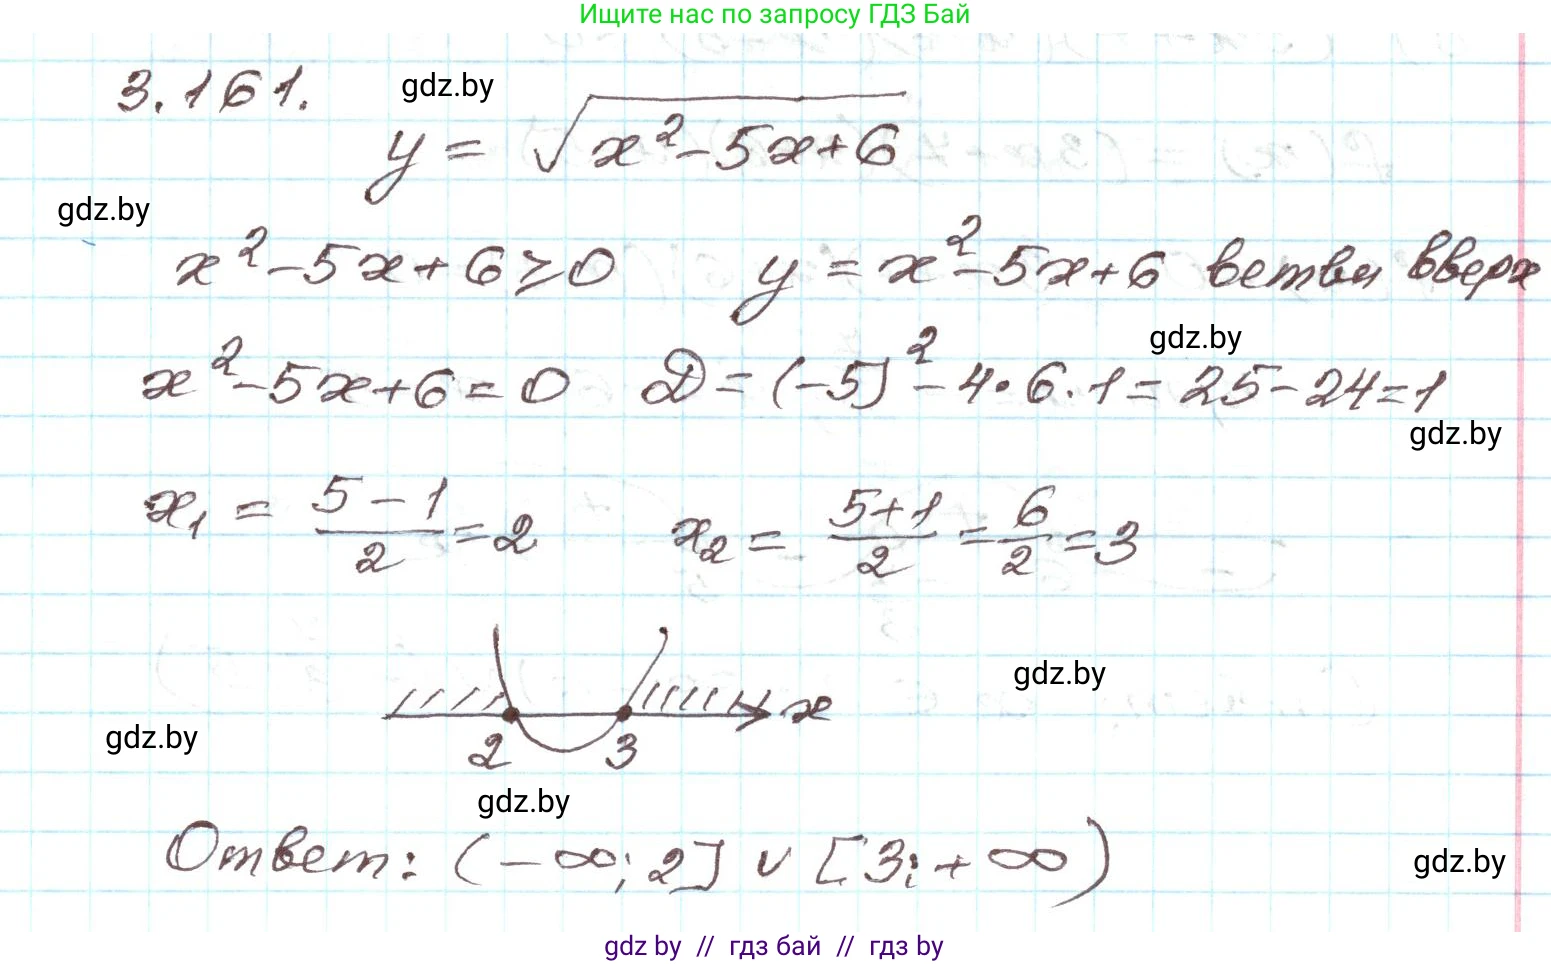 Ищите нас по запросу ГДЗ Бай
3.161.
gdz.by
y = √(x² - 5x + 6)
gdz.by
x² - 5x + 6 ≥ 0 y = x² - 5x + 6 ветви вверх
gdz.by
x² - 5x + 6 = 0 D = (-5)² - 4·6·1 = 25 - 24 = 1
gdz.by
x₁ = (5 - 1)/2 = 2 x₂ = (5+1)/2 = 6/2 = 3
gdz.by
x
gdz.by
2 3
gdz.by
Ответ: (-∞; 2] ∪ [3; +∞)
gdz.by
gdz by // гдз бай // гдз by